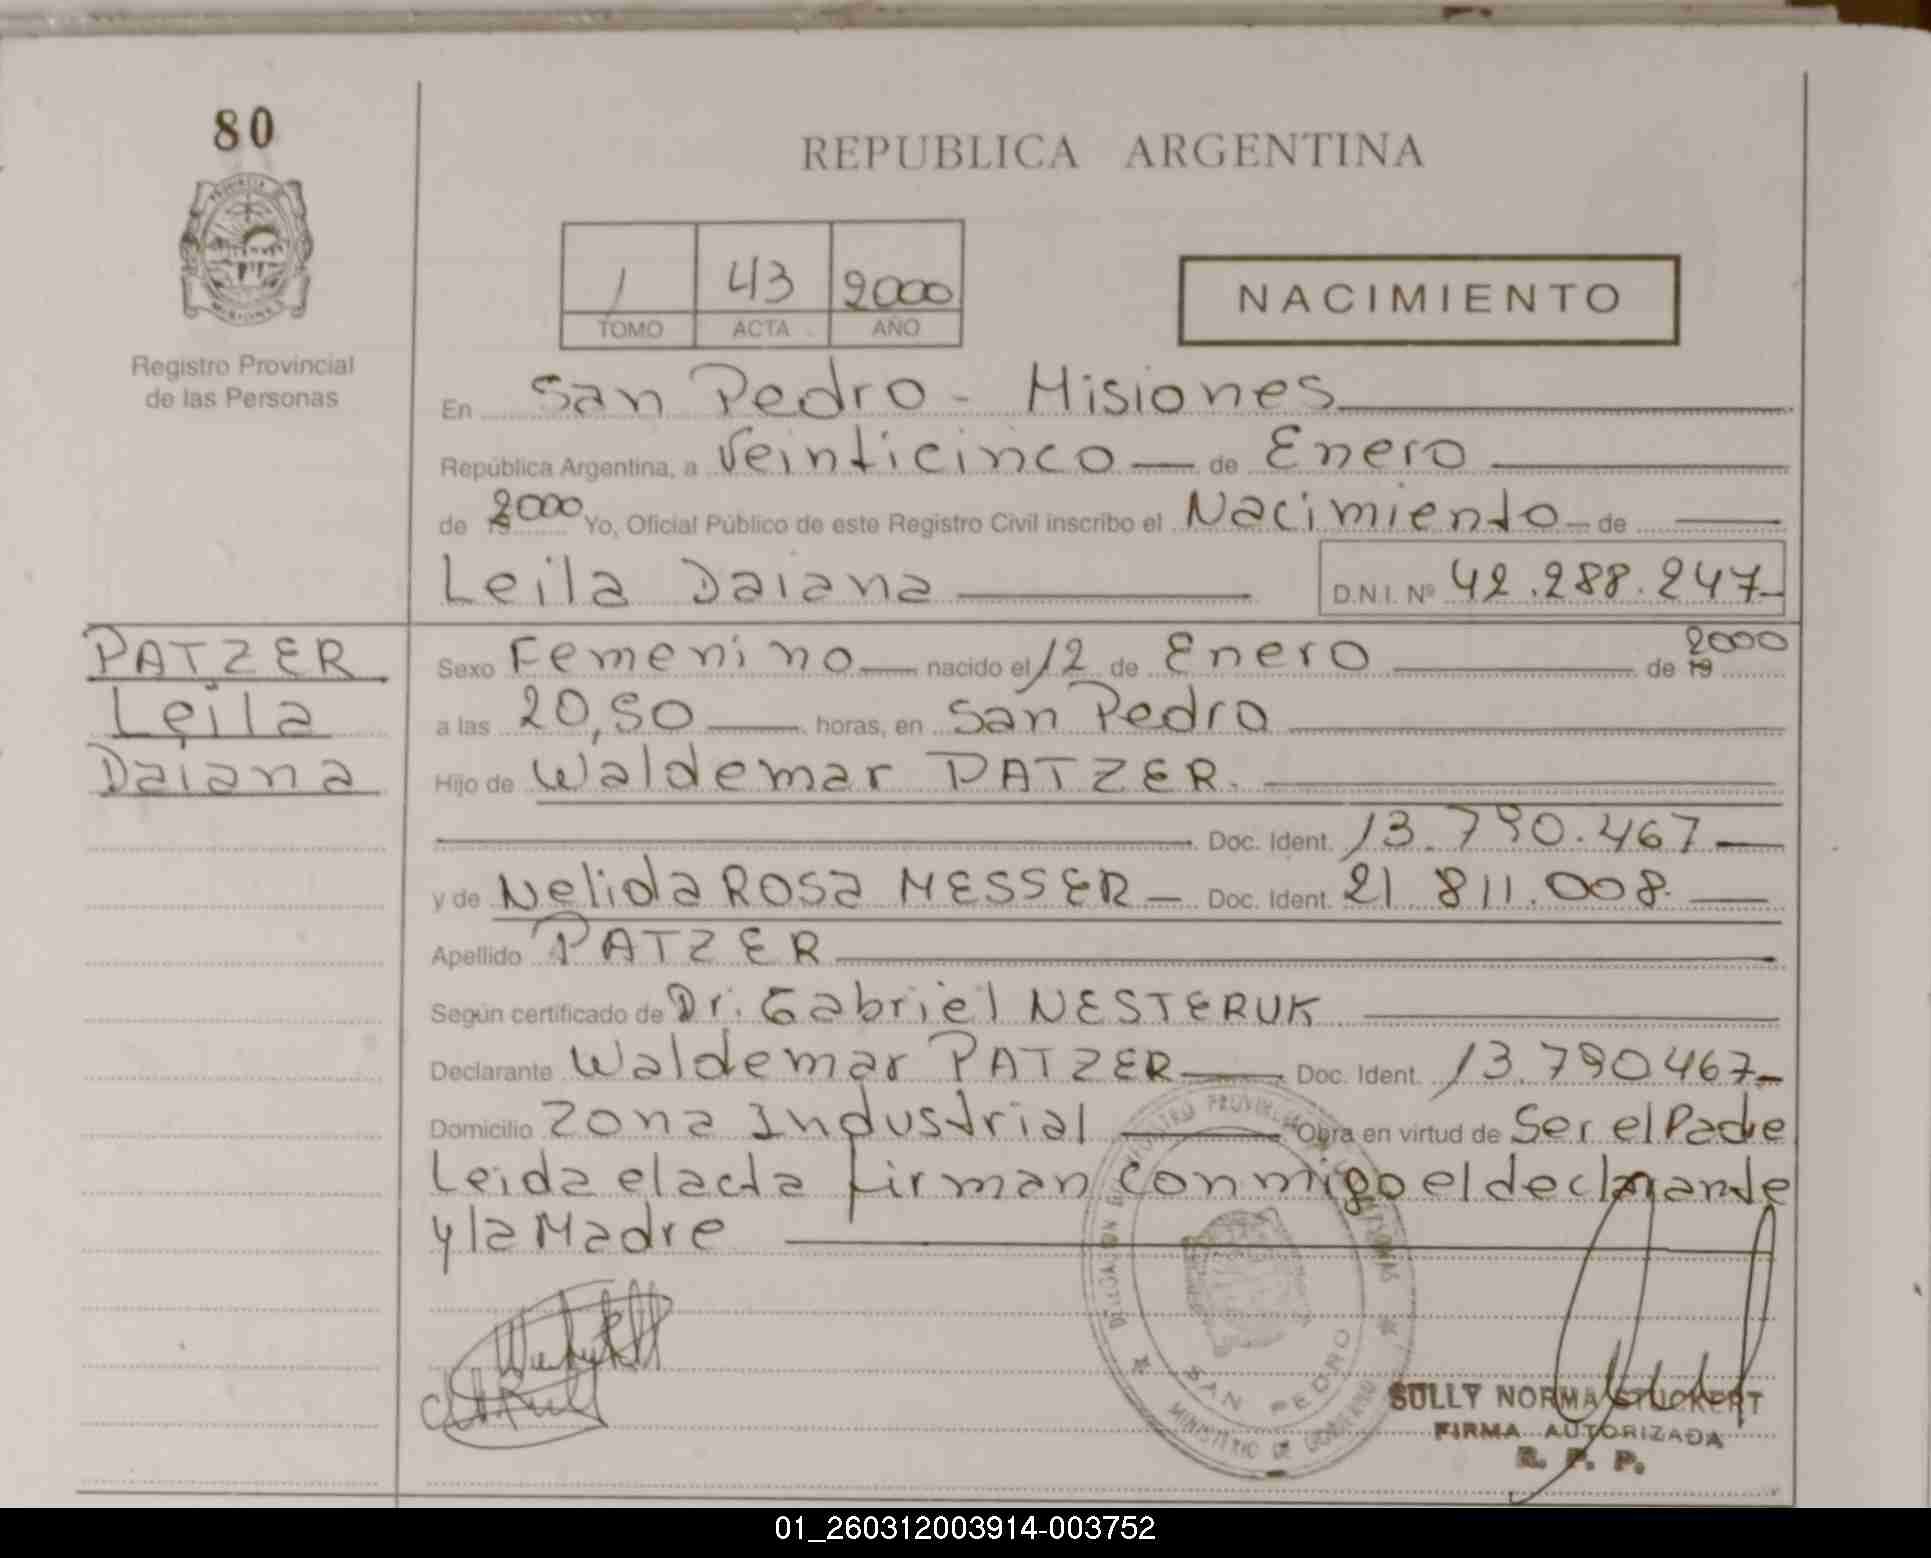 80
REPUBLICA ARGENTINA
1 43 2000
TOMO ACTA AÑO
NACIMIENTO
Registro Provincial
de las Personas
En San Pedro - Misiones
República Argentina, a Veinticinco de Enero
de 19 2000 Yo, Oficial Público de este Registro Civil inscribo el Nacimiento de
Leila Daiana D.N.I. Nº 42.288.247
PATZER
Leila
Daiana
Sexo Femenino nacido el 12 de Enero de 19 2000
a las 20,50 horas, en San Pedro
Hijo de Waldemar PATZER.
Doc. Ident. 13.790.467
y de Nelida Rosa MESSER Doc. Ident. 21 811.008.
Apellido PATZER
Según certificado de Dr. Gabriel NESTERUK
Declarante Waldemar PATZER Doc. Ident. 13.790467
Domicilio Zona Industrial Obra en virtud de Ser el Padre
Leida el acta firman conmigo el declarante
y la Madre
SAN PEDRO
MINISTERIO DE GOBIERNO
SULLY NORMA STUCKERT
FIRMA AUTORIZADA
R. P. P.
01_260312003914-003752